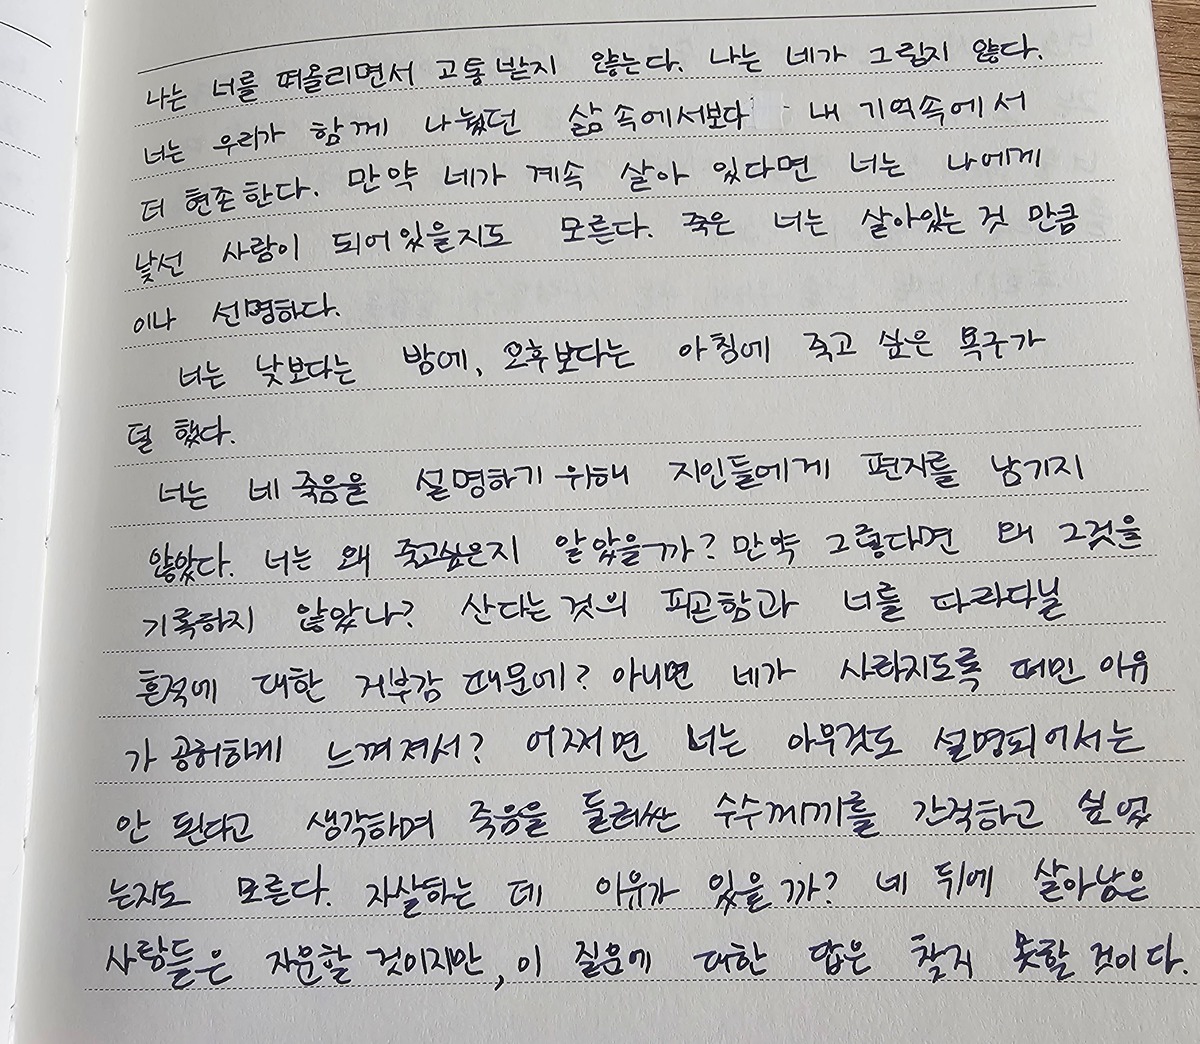 나는 너를 떠올리면서 고통받지 않는다. 나는 네가 그립지 않다.
너는 우리가 함께 나눴던 삶 속에서보다 내 기억속에서
더 현존한다. 만약 네가 계속 살아 있다면 너는 나에게
낯선 사람이 되어있을지도 모른다. 죽은 너는 살아있는 것 만큼
이나 선명하다.
너는 낮보다는 밤에, 오후보다는 아침에 죽고 싶은 욕구가
덜 했다.
너는 네 죽음을 설명하기 위해 지인들에게 편지를 남기지
않았다. 너는 왜 죽고싶은지 알았을까? 만약 그렇다면 왜 그것을
기록하지 않았나? 산다는 것의 피곤함과 너를 따라다닐
흔적에 대한 거부감 때문에? 아니면 네가 사라지도록 떠민 이유
가 공허하게 느껴져서? 어쩌면 너는 아무것도 설명되어서는
안 된다고 생각하며 죽음을 둘러싼 수수께끼를 간직하고 싶었
는지도 모른다. 자살하는 데 이유가 있을까? 네 뒤에 살아남은
사람들은 자문할 것이지만, 이 질문에 대한 답은 찾지 못할 것이다.